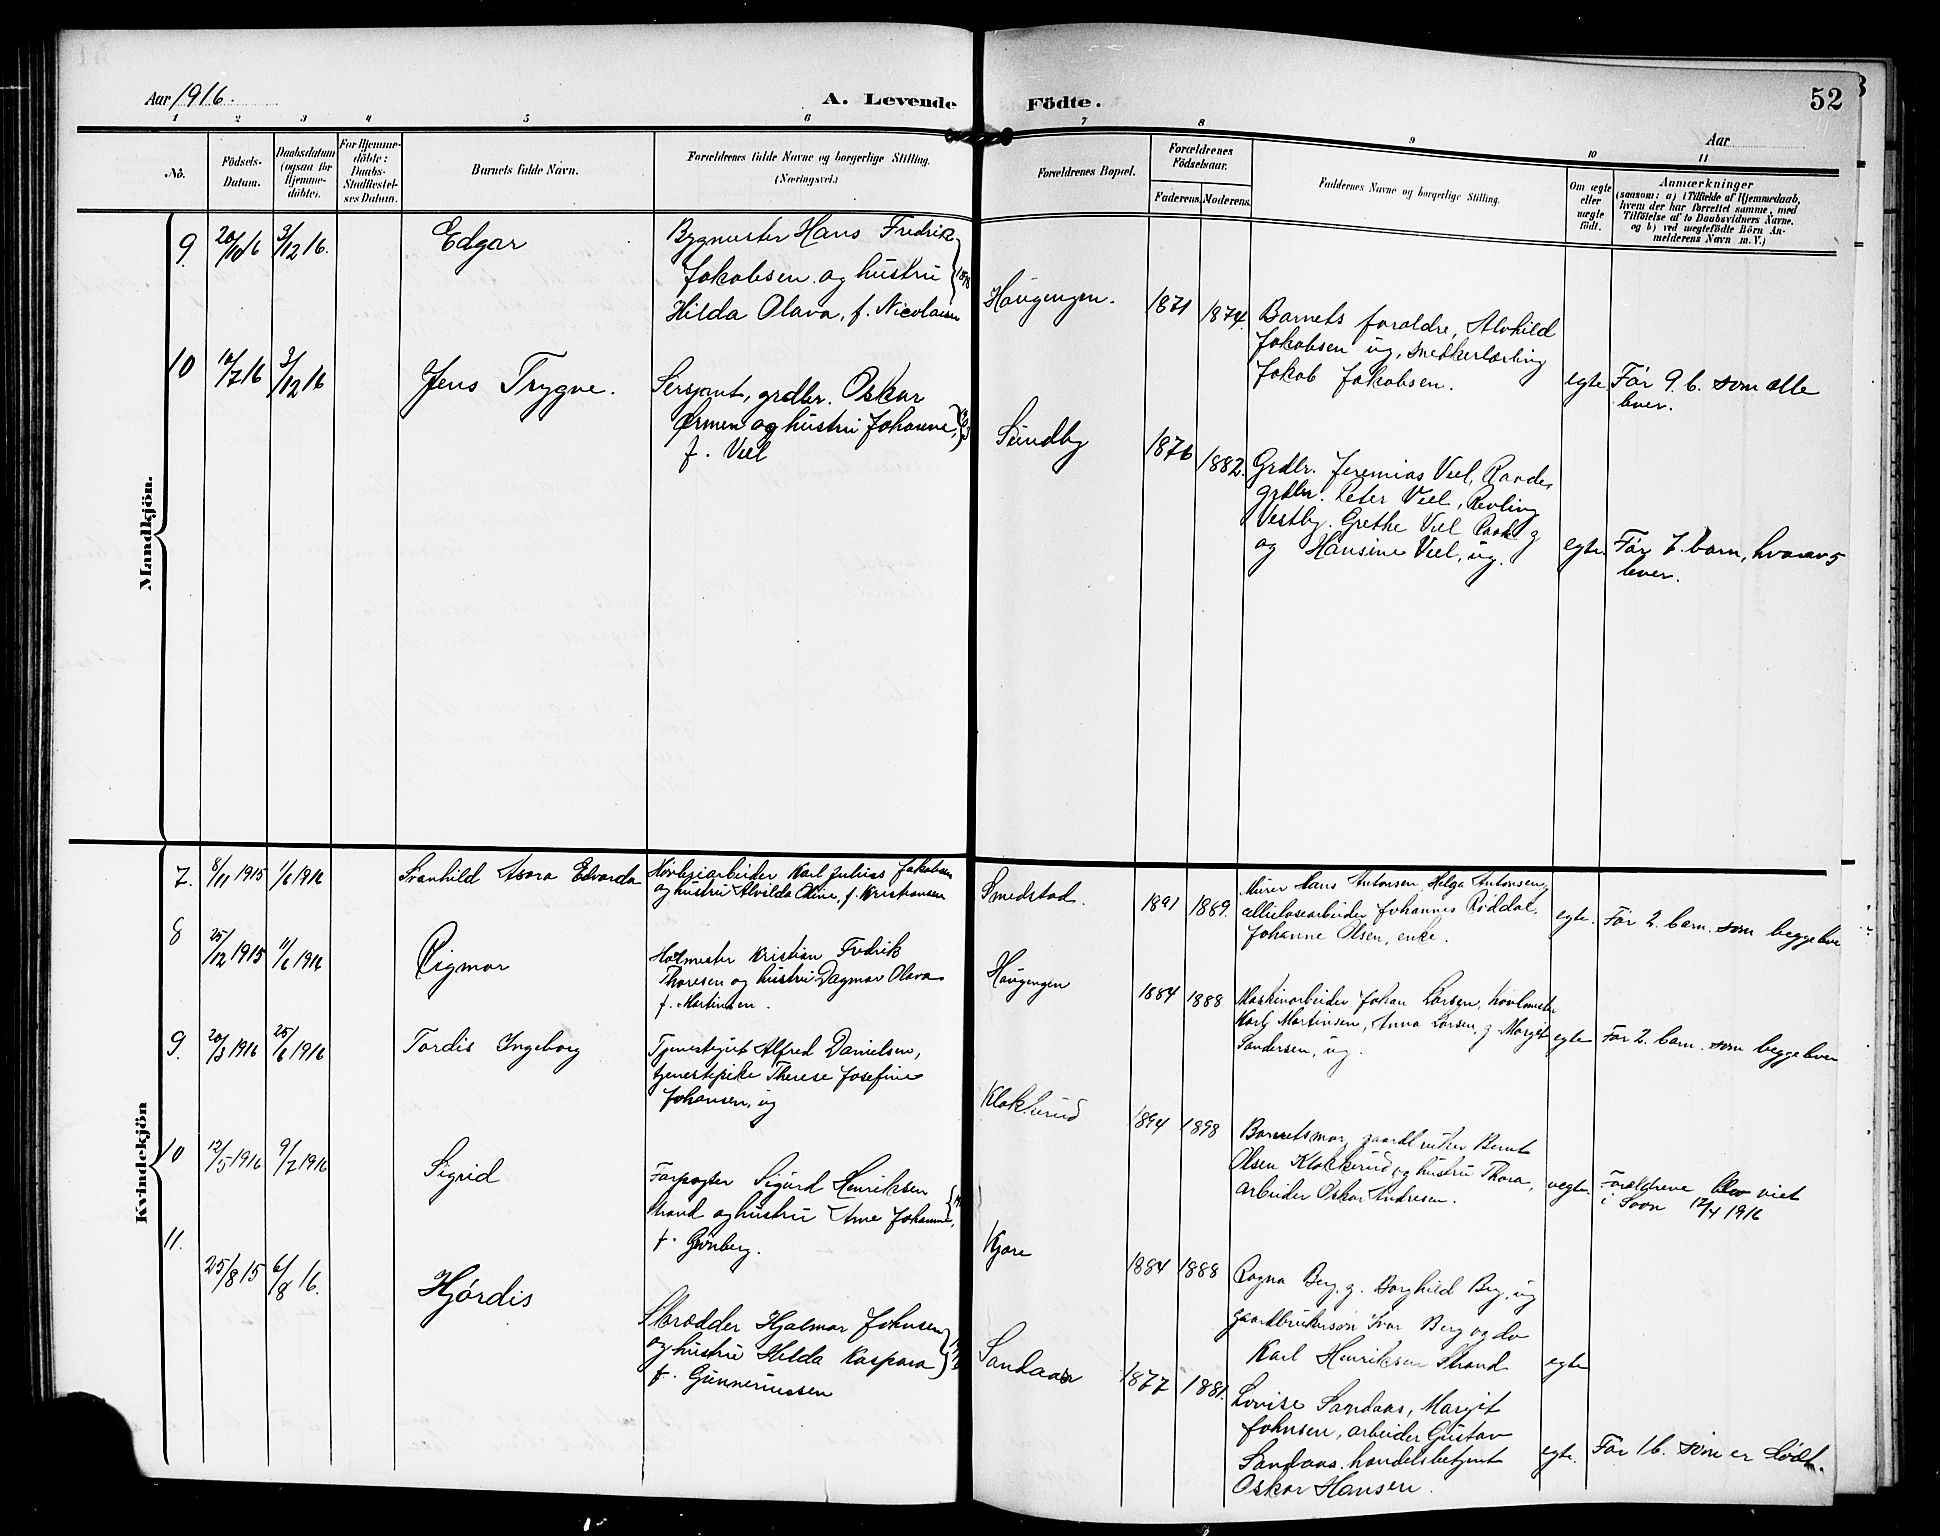 Aar 1916.
A. Levende Födte.
52
Aar
1 2 3 4 5 6 7 8 9 10 11
No.
Födsels-
Datum.
Daabsdatum
(ogsaa for
Hjemme-
döbte).
For Hjemme-
döbte:
Daabs-
Stadfæstel-
ses Datum.
Barnets fulde Navn.
Forældrenes fulde Navne og borgerlige Stilling.
(Næringsvei.)
Forældrenes Bopæl.
Forældrenes
Födselsaar.
Faderens. Moderens.
Faddernes Navne og borgerlig Stilling.
Om ægte
eller
uægte
födt.
Anmærkninger
(saasom: a) i Tilfælde af Hjemmedaab,
hvem der har forrettet samme, med
Tilföielse af to Daabsvidners Navne.
og b) ved uægtefödte Börn An-
melderens Navn m. V.)
Mandkjön.
9. 20/10 16 3/12 16. Edgar
Bygmester Hans Fredrik
Jakobsen og hustru
Hilda Olava, f. Nicolaisen
Haugengen. 1871 1874.
Barnets forældre, Alvhild
Jakobsen ug, snedkerlærling
Jakob Jakobsen.
egte. Før 9. b. som alle
lever.
10 10/7 16 3/12 16 Jens Trygve.
Sersjant, grdbr. Oskar
Ørmen og hustru Johanne,
f. Viel
Sundby 1876 1882.
Grdbr. Jeremias Viel, Rande,
grdbr. Peter Viel, Revling
Vestby. Grethe Viel
og Hansine Viel, ug.
egte. Før 7. barn, hvorav 5
lever.
Kvindekjön
7. 8/11 1915 1/6 1916 Svanhild Asora Edvarda
Høvleriarbeider Karl Julius Jakobsen
og hustru Alvilda Oline, f. Kristiansen
Smedstad. 1891 1889.
Murer Hans Antonsen, Helga Antonsen,
cellulosearbeider Johannes Røddal,
Johanne Olsen, enke.
egte. Før 2. barn. som begge lever
8 25/12 1915 11/6 1916 Rigmor
Kristian Fredrik
Thoresen og hustru Dagmar Olava
f. Martinsen.
Haugengen 1884 1888
Maskinarbeider Johan Larsen, høvlmester
Karl Martinsen, Anna Larsen, g. Margit
Sandersen, ug.
egte Før 2. barn. som begge lever
9. 20/3 1916 25/6 1916 Tordis Ingeborg
Tjenestegut Alfred Danielsen,
tjenestepike Therese Josefine
Johansen, ug
Klokkerud 1894 1898
Barnetsmor, gaardbruker Bernt
Olsen Klokkerud, og hustru Thora,
arbeider Oskar Andresen.
uegte. Forældrene blev viet
i Soon 12/4 1916
10 12/5 1916 9/7 1916 Sigrid
Forpagter Sigurd Henriksen
Strand og hustru Arne Johanne,
f. Grønberg.
Kjøre 1884 1888
Ragna Berg, g. Borghild Berg, ug
gaardbrukersøn Ivar Berg og do
Karl Henriksen Strand
egte
11. 25/8 15 6/8 16. Hjördis
Skrædder Hjalmar Johnsen
og hustru Hilda Kaspara
f. Gunneriussen
Sandaas 1877 1881.
Lovise Sandaas, Margit
Johnsen, arbeider Gustav
Sandaas. handelsbetjent
Oskar Hansen.
egte. Før 1 b. som er død.